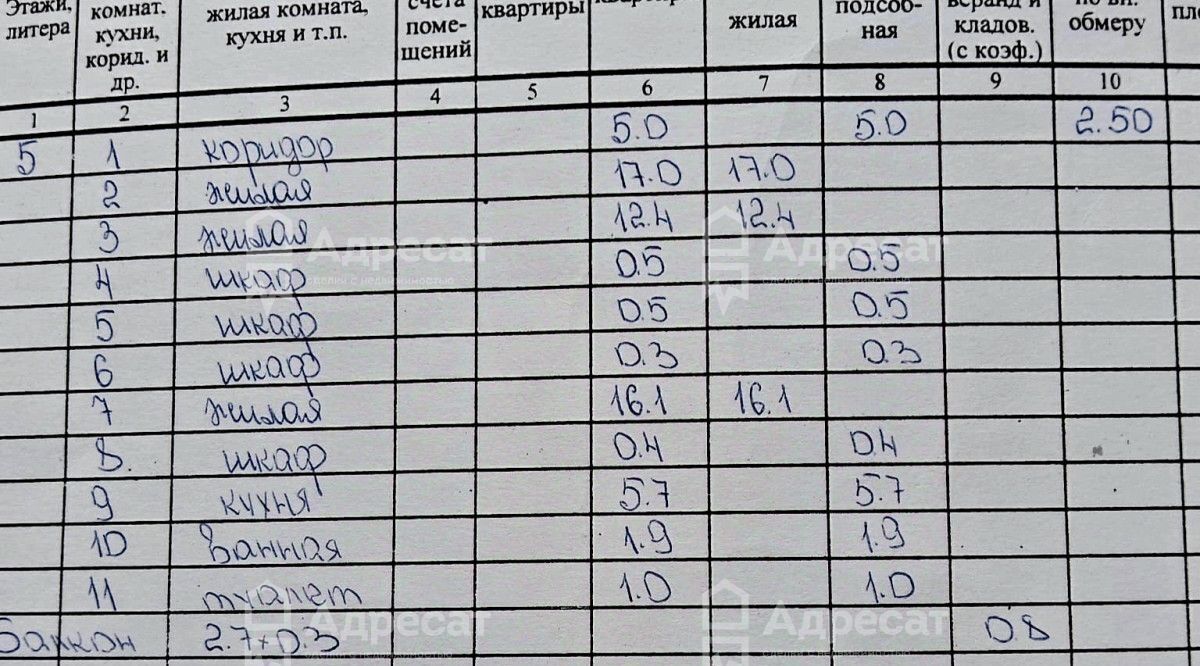 Этажи, литера | комнат, кухни, корид. и др. | жилая комната, кухня и т.п. | счета поме-щений | квартиры | | жилая | подсоб-ная | веранд и кладов. (с коэф.) | по вн. обмеру
1 2 3 4 5 6 7 8 9 10
5 1 коридор 5.0 5.0 2.50
2 жилая 17.0 17.0
3 жилая 12.4 12.4
4 шкаф 0.5 0.5
5 шкаф 0.5 0.5
6 шкаф 0.3 0.3
7 жилая 16.1 16.1
8. шкаф 0.4 0.4
9 кухня 5.7 5.7
10 ванная 1.9 1.9
11 туалет 1.0 1.0
Балкон 2.7×0.3 0.8
Адресат
сделки с недвижимостью
Адресат
сделки с недвижимостью
Адресат
сделки с недвижимостью
Адресат
сделки с недвижимостью